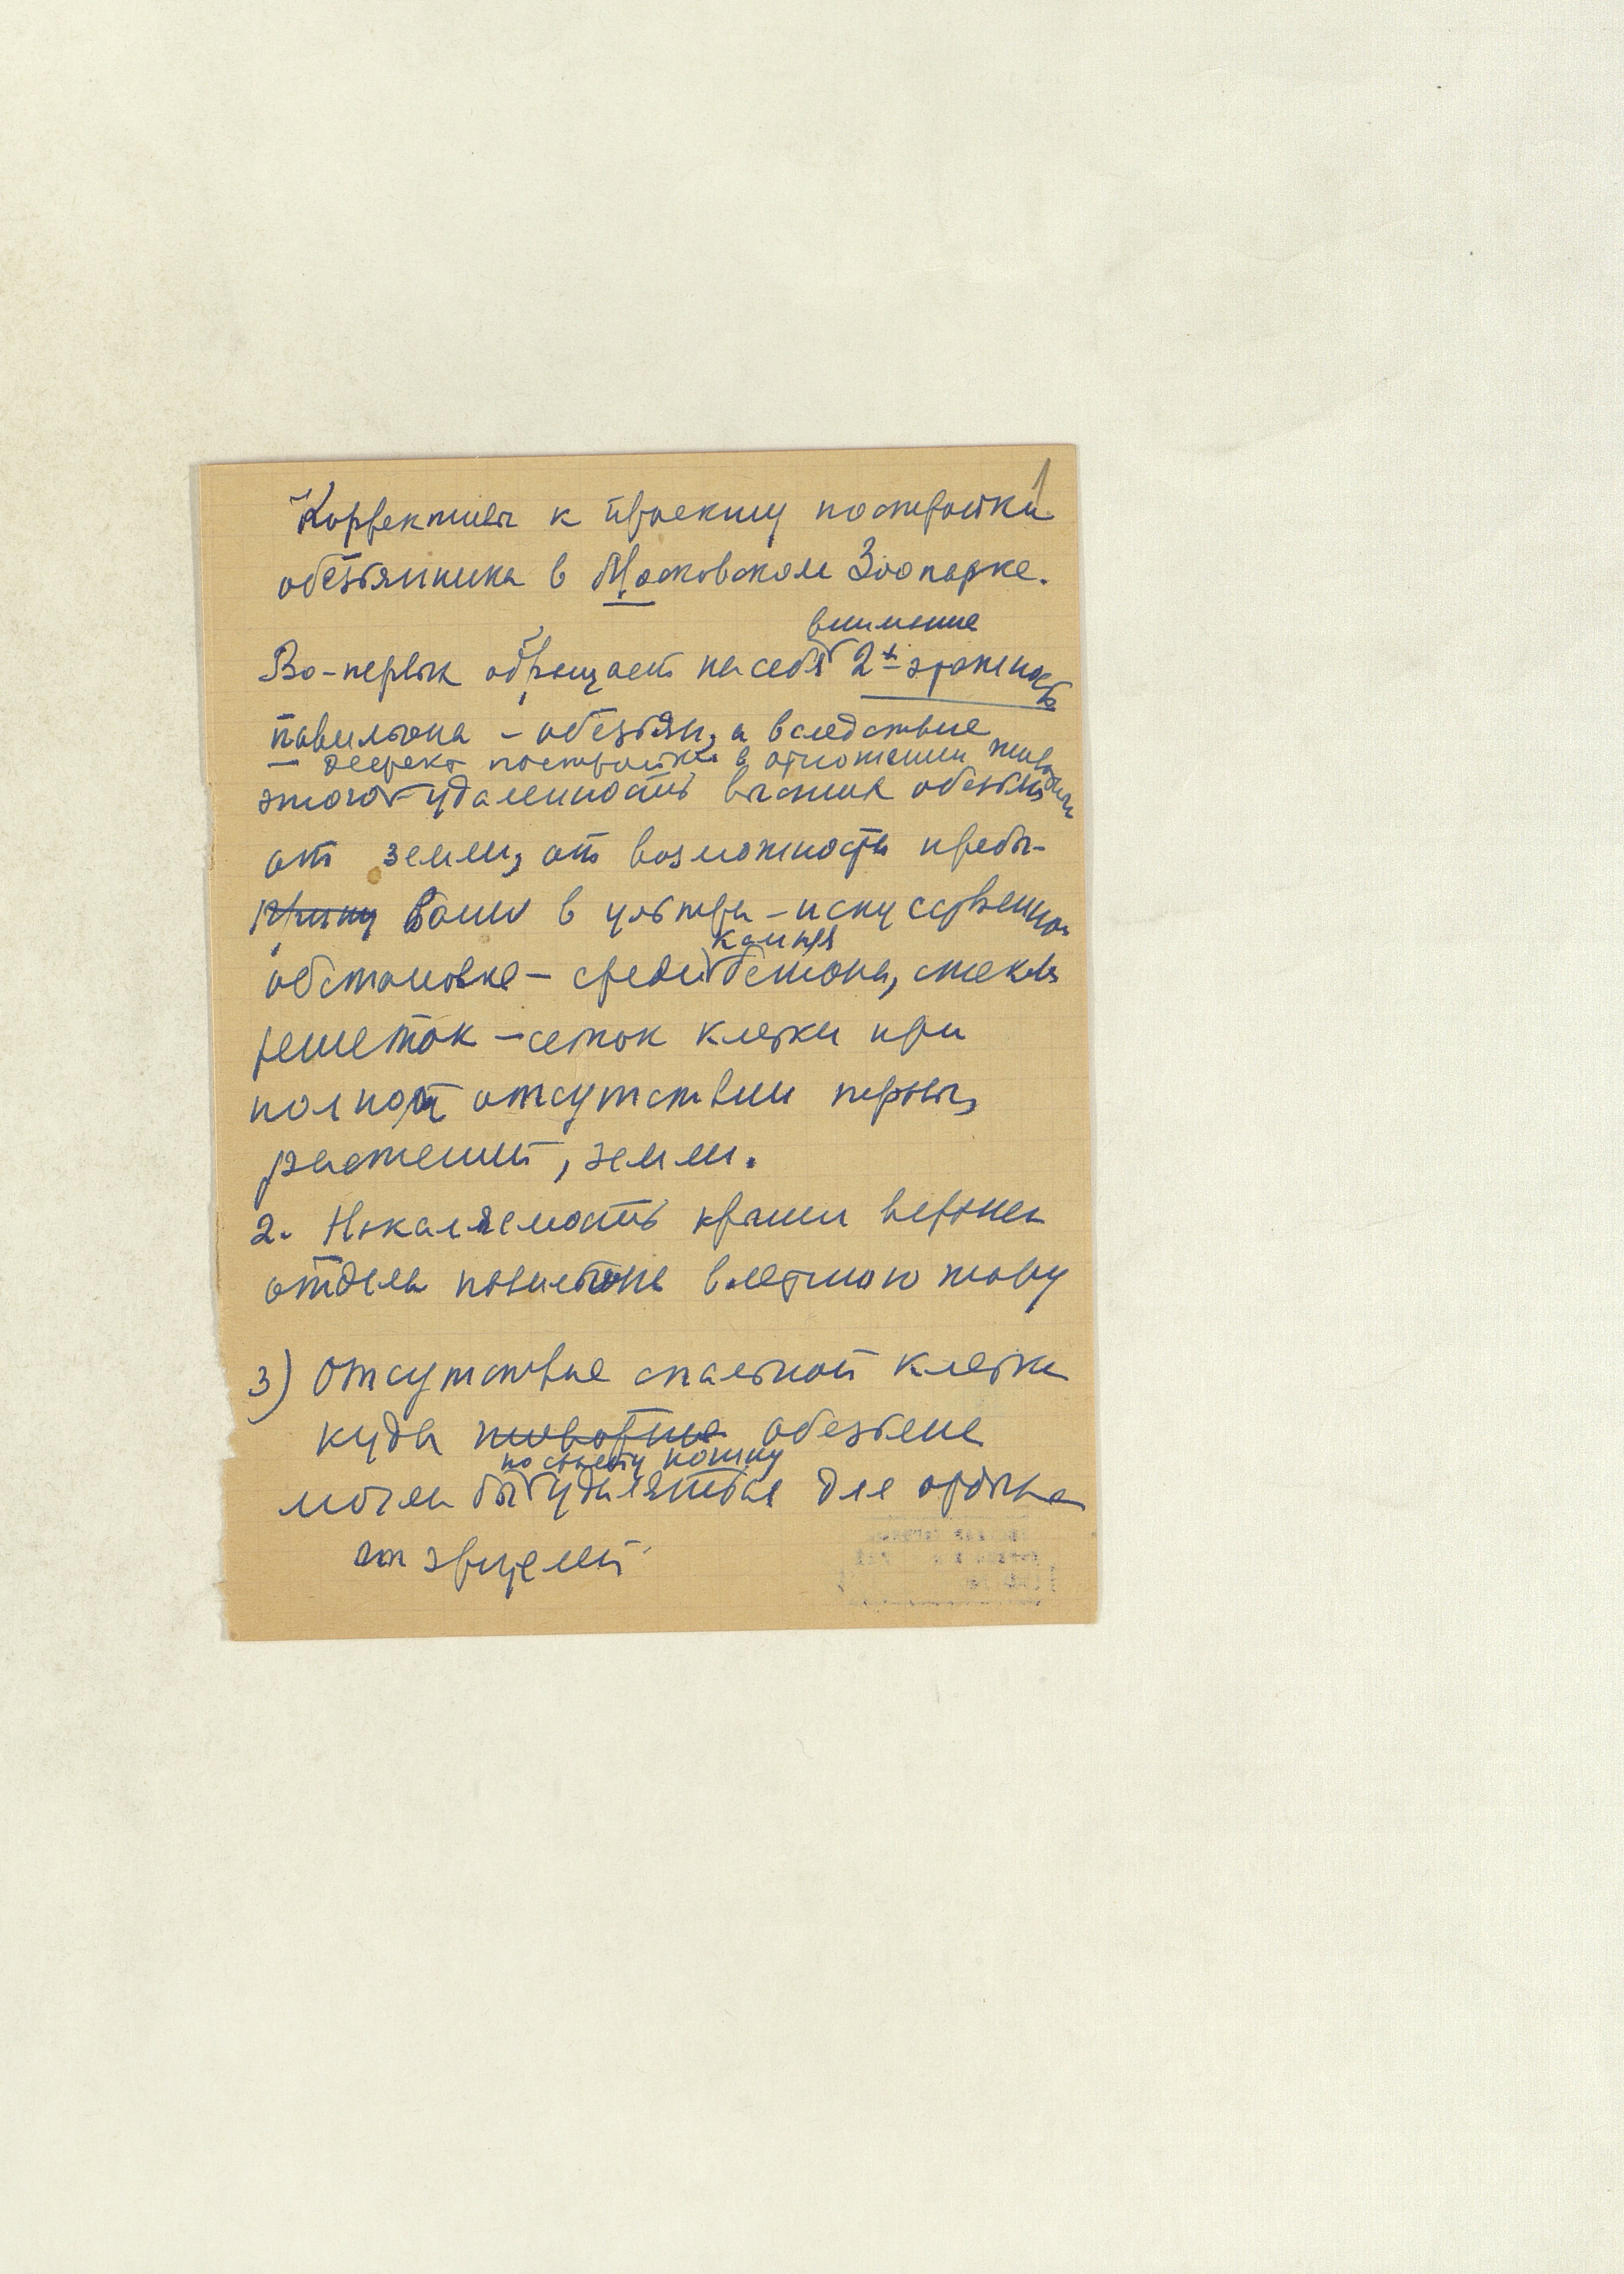 1
Коррективы к проекту постройки
обезьянника в Московском Зоопарке.
внимание
Во-первых обращает на себя 2х этажность
павильона – обезьян, а вследствие
– дефект постройки в отношении
этого удаленность высших обезьян
от земли, от возможности пребы-
вания в ультра-искусственной
камня
обстановке – среди бетона, стекла
решеток – сеток клетки при
полном отсутствии
растений, земли.
2. Накаляемость крыши верхнего
отдела павильона в летнюю жару
3) Отсутствие спальной клетки
куда животные обезьяне
по своему
могли бы удаляться для отдыха
от зрителей